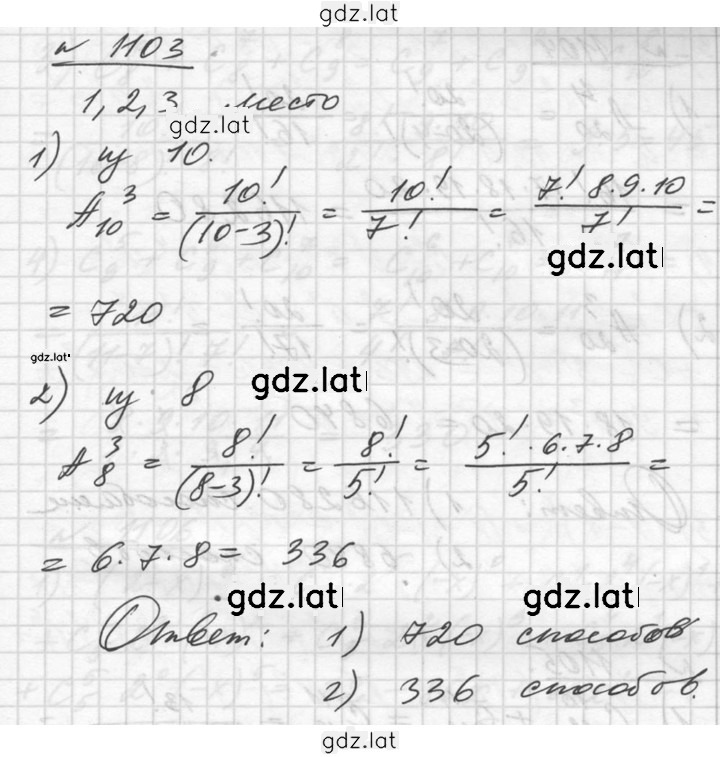 gdz.lat
№ 1103
1, 2, 3 место
gdz.lat
1) из 10.
A₁₀³ = 10!/(10-3)! = 10!/7! = 7! 8·9·10/7! =
gdz.lat
= 720
gdz.lat
2) из 8
gdz.lat
A₈³ = 8!/(8-3)! = 8!/5! = 5!·6·7·8/5! =
= 6·7·8 = 336
gdz.lat
gdz.lat
Ответ: 1) 720 способов
2) 336 способов.
gdz.lat